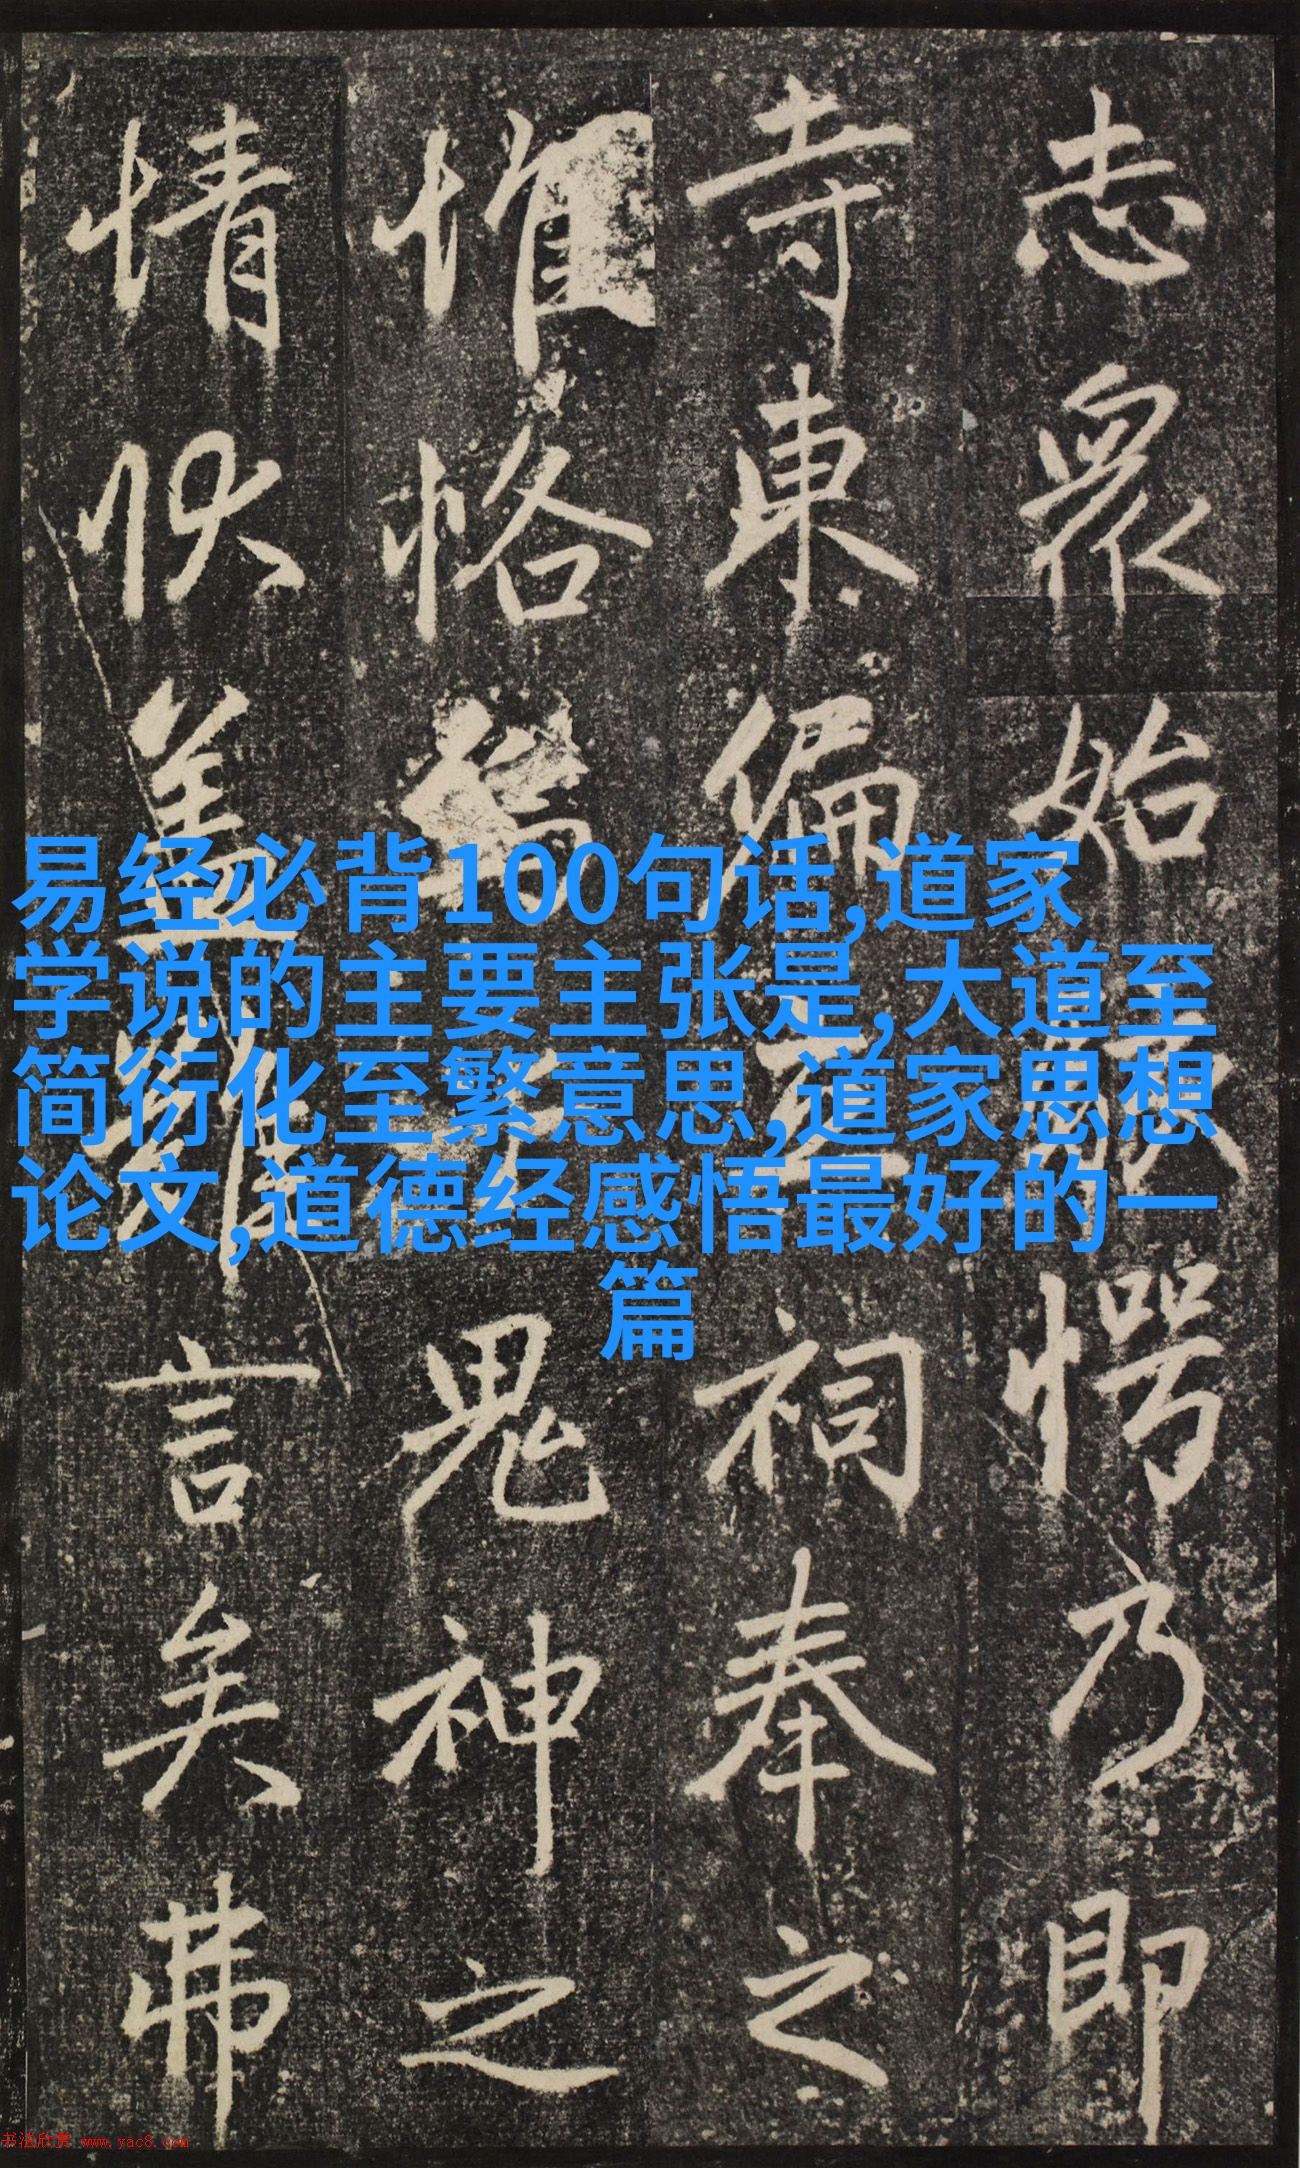 志眾始愕乃即
寺東偏祠奉之
惟恪鬼神之
情狀蓋難言矣弗
易经必背100句话,道家
学说的主要主张是,大道至
简衍化至繁意思,道家思想
论文,道德经感悟最好的一
篇
书法欣赏 www.yac8.com